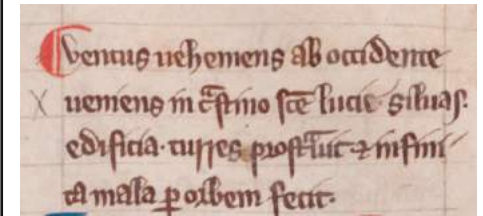 ventus uehemens ab occidente
ueniens in c̄stino sc̄e lucie siluas.
edificia. turres prost̄uit ⁊ infini
ta mala ꝑ orbem fecit.